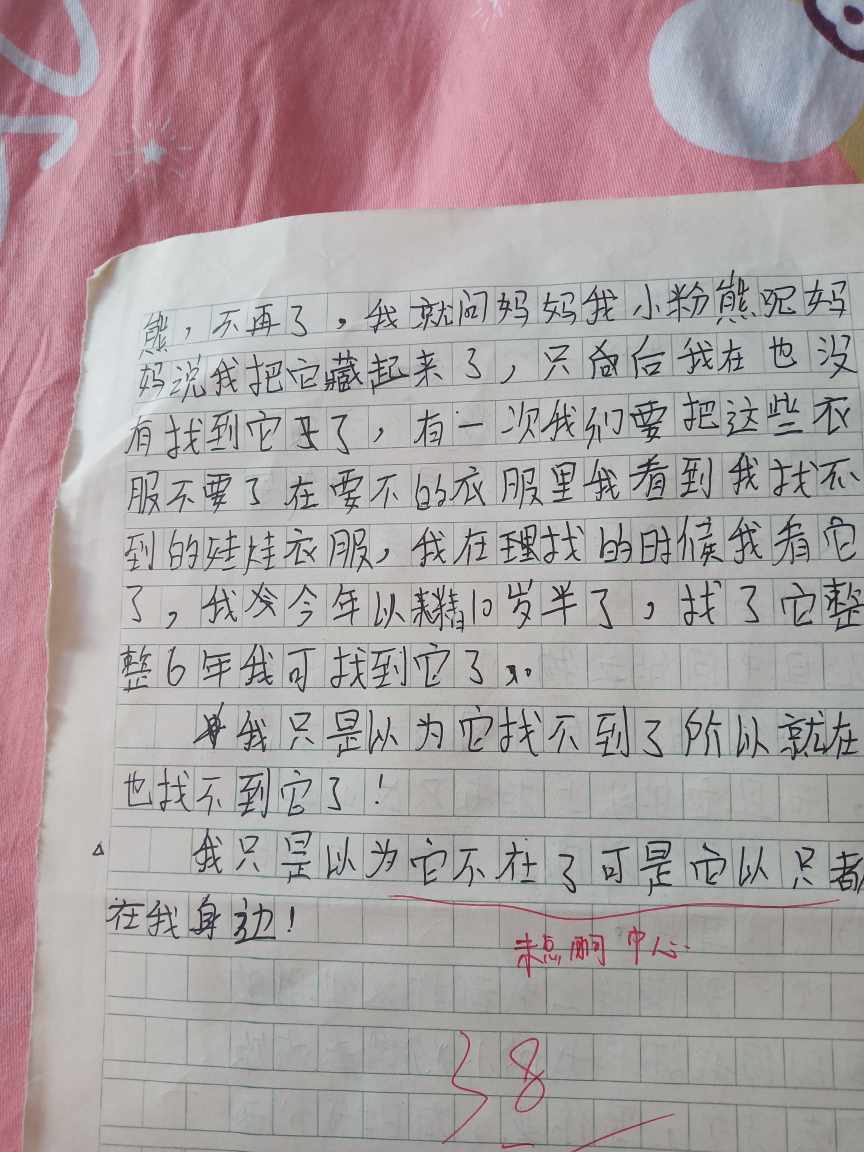 熊，不再了，我就问妈妈我小粉熊呢妈
妈说我把它藏起来了，只向后我在也没
有找到它了，有一次我们要把这些衣
服不要了在要不的衣服里我看到我找不
到的娃娃衣服，我在理找的时候我看它
了，我今年以精10岁半了，找了它整
整6年我可找到它了。
我只是以为它找不到了所以就在
也找不到它了！
我只是以为它不在了可是它以只都
在我身边！
未点 中心
38